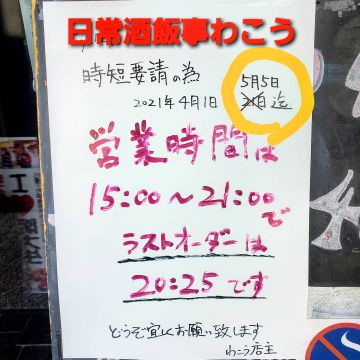 日常酒飯事わこう
時短要請の為
5月5日
2021年4月1日 迄
営業時間は
15:00～21:00で
ラストオーダーは
20:25です
どうぞ宜しくお願い致します
わこう店主